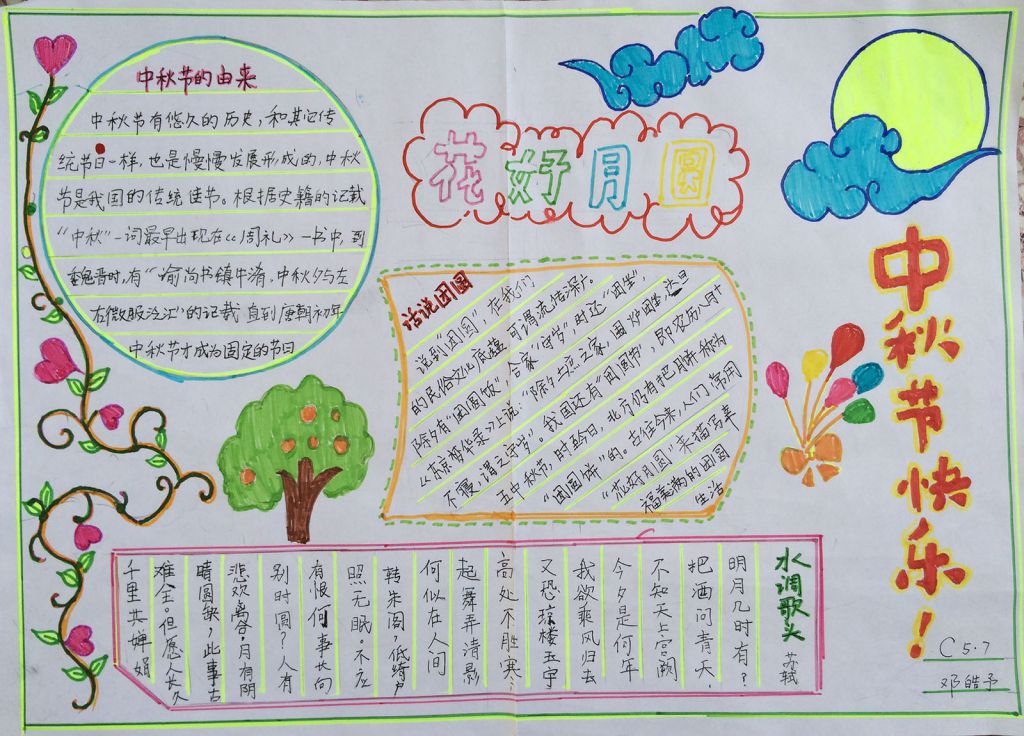 花好月圆
中秋节快乐！
C5.7
邓皓予
中秋节的由来
中秋节有悠久的历史，和其它传
统节日一样，也是慢慢发展形成的，中秋
节是我国的传统佳节。根据史籍的记载
“中秋”一词最早出现在《周礼》一书中，到
魏晋时，有“谕尚书镇牛渚，中秋夕与左
右微服泛江”的记载直到唐朝初年
中秋节才成为固定的节日
话说团圆
说到“团圆”，在我们
的民俗文化底蕴可谓流传深广。
除夕有“团圆饭”，合家“守岁”时还“团坐”，
《东京梦华录》上说：“除夕士庶之家，围炉团坐，达旦
不寝，谓之守岁”。我国还有“团圆节”，即农历八月十
五中秋节，时至今日，北方仍有把月饼称为
“团圆饼”的。古往今来，人们常用
“花好月圆”来描写幸
福美满的团圆
生活
水调歌头 苏轼
明月几时有？
把酒问青天，
不知天上宫阙
今夕是何年
我欲乘风归去
又恐琼楼玉宇
高处不胜寒，
起舞弄清影
何似在人间
转朱阁，低绮户
照无眠。不应
有恨何事长向
别时圆？人有
悲欢离合。月有阴
晴圆缺，此事古
难全。但愿人长久
千里共婵娟